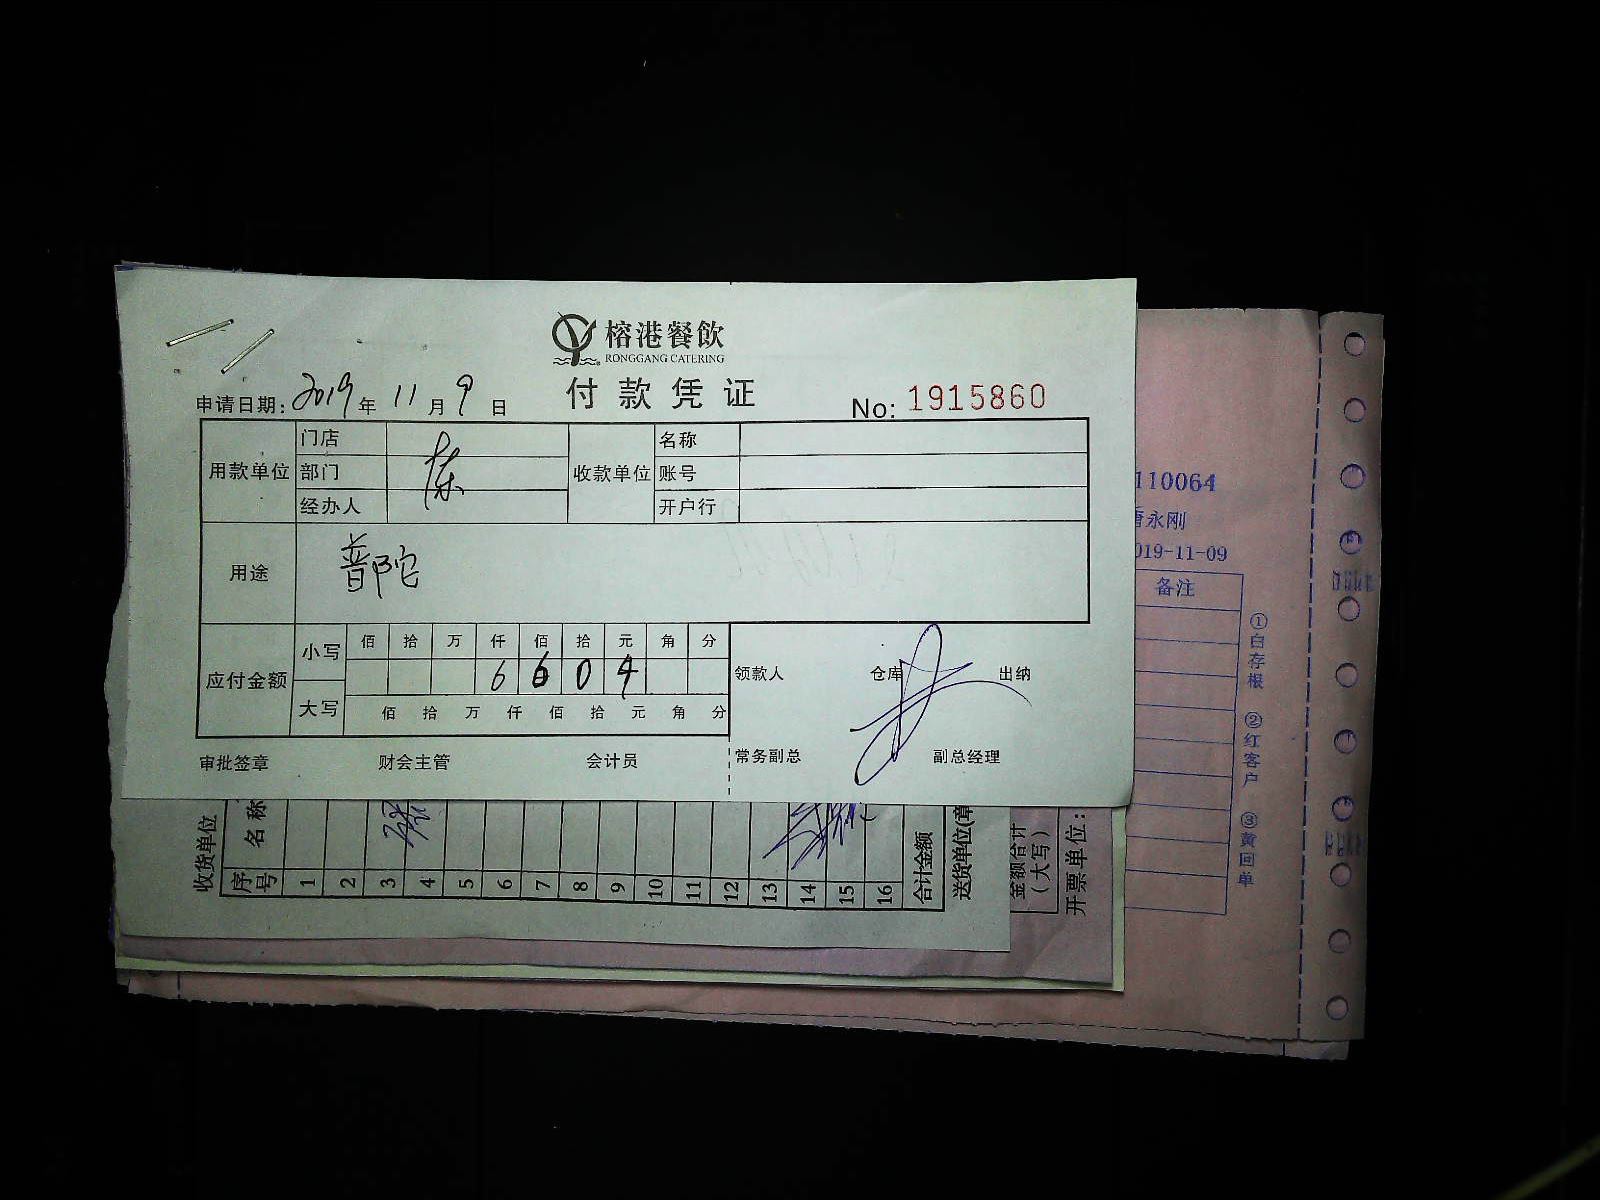 榕港餐飲
RONGGANG CATERING
付款凭证
申请日期: 2019 年 11 月 9 日
No: 1915860
用款单位 门店 收款单位 名称
部门 陈 账号
经办人 开户行
用途 普陀
应付金额 小写 佰 拾 万 仟 佰 拾 元 角 分
6 6 0 4
大写 佰 拾 万 仟 佰 拾 元 角 分
领款人 仓库 出纳
审批签章 财会主管 会计员 常务副总 副总经理
110064
永刚
019-11-09
备注
①白存根 ②红客户 ③黄回单
收货单位
序号 名称
1
2
3
4
5
6
7
8
9
10
11
12
13
14
15
16
合计金额
送货单位(章
金额合计
(大写)
开票单位: